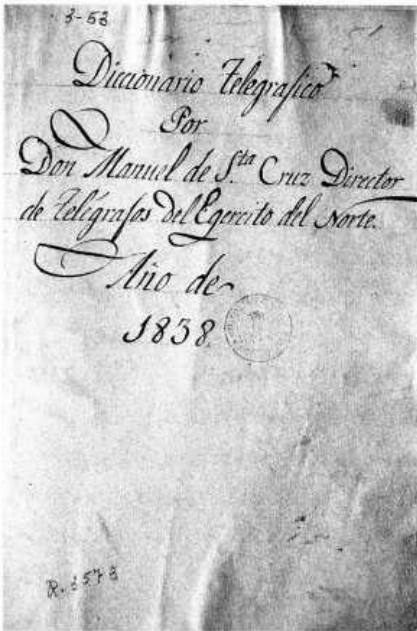 3-53
Diccionario Telegrafico
Por
Don Manuel de S.ta Cruz Director
de Telégrafos del Egercito del Norte.
Año de
1838.
R. 3573